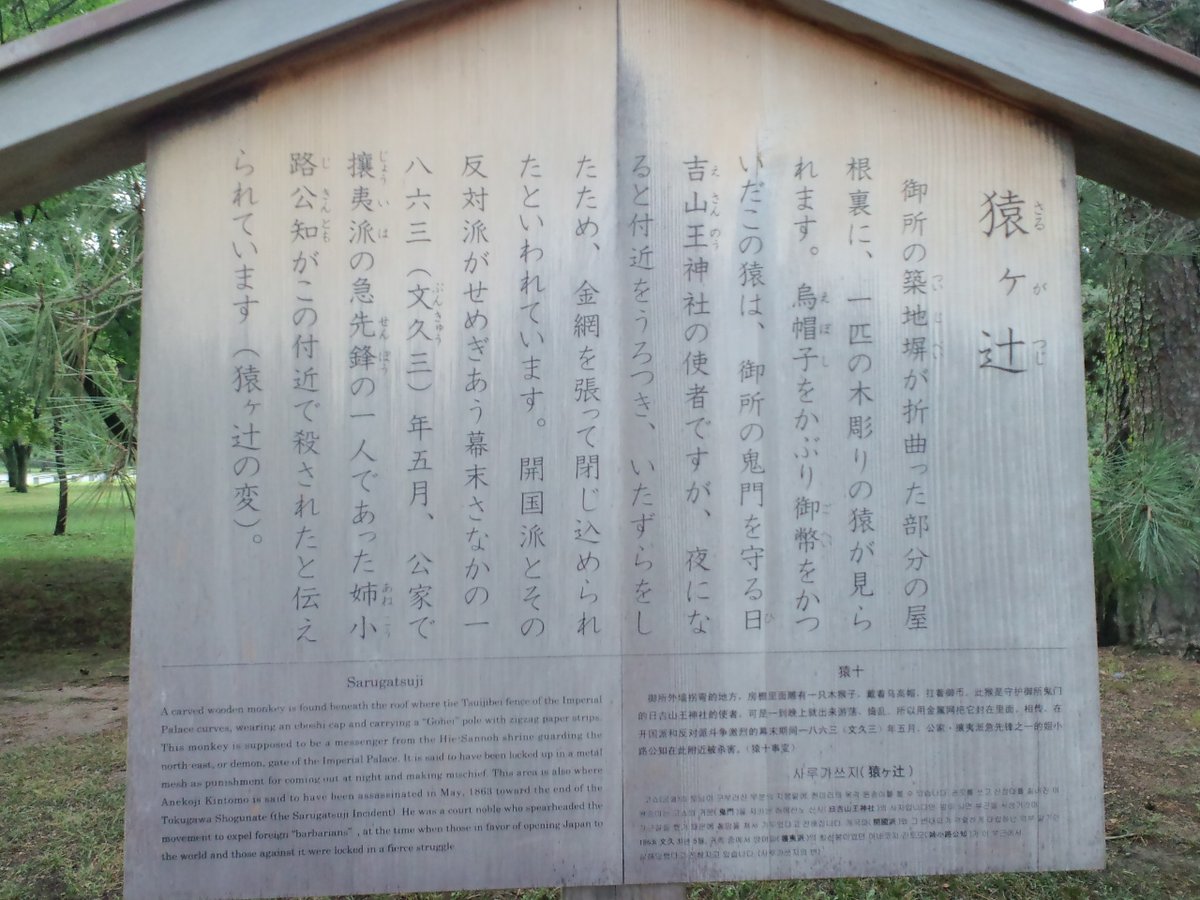 猿ヶ辻
さる が つじ
御所の築地塀が折曲った部分の屋
根裏に、一匹の木彫りの猿が見ら
れます。烏帽子をかぶり御幣をかつ
いだこの猿は、御所の鬼門を守る日
吉山王神社の使者ですが、夜にな
ると付近をうろつき、いたずらをし
たため、金網を張って閉じ込められ
たといわれています。開国派とその
反対派がせめぎあう幕末さなかの一
八六三（文久三）年五月、公家で
攘夷派の急先鋒の一人であった姉小
路公知がこの付近で殺されたと伝え
られています（猿ヶ辻の変）。
Sarugatsuji
A carved wooden monkey is found beneath the roof where the Tsuijibei fence of the Imperial
Palace curves, wearing an eboshi cap and carrying a "Gohei" pole with zigzag paper strips.
This monkey is supposed to be a messenger from the Hie-Sannoh shrine guarding the
north-east, or demon, gate of the Imperial Palace. It is said to have been locked up in a metal
mesh as punishment for coming out at night and making mischief. This area is also where
Anekoji Kintomo is said to have been assassinated in May, 1863 toward the end of the
Tokugawa Shogunate (the Sarugatsuji Incident) He was a court noble who spearheaded the
movement to expel foreign "barbarians" , at the time when those in favor of opening Japan to
the world and those against it were locked in a fierce struggle
猿十
御所外墙拐弯的地方，房棚里面雕有一只木猴子，戴着乌高帽，拉着御币。此猴是守护御所鬼门
的日吉山王神社的使者，可是一到晚上就出来游荡、捣乱，所以用金属网把它封在里面。相传，在
开国派和反对派斗争激烈的幕末期间一八六三（文久三）年五月，公家・攘夷派急先锋之一的姐小
路公知在此附近被杀害。（猿十事变）
사루가쓰지(猿ヶ辻)